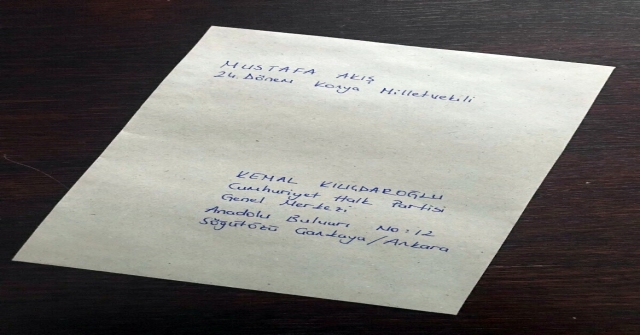 MUSTAFA AKIŞ
24. Dönem Konya Milletvekili
KEMAL KILIÇDAROĞLU
Cumhuriyet Halk Partisi
Genel Merkezi
Anadolu Bulvarı No: 12
Söğütözü Çankaya/Ankara